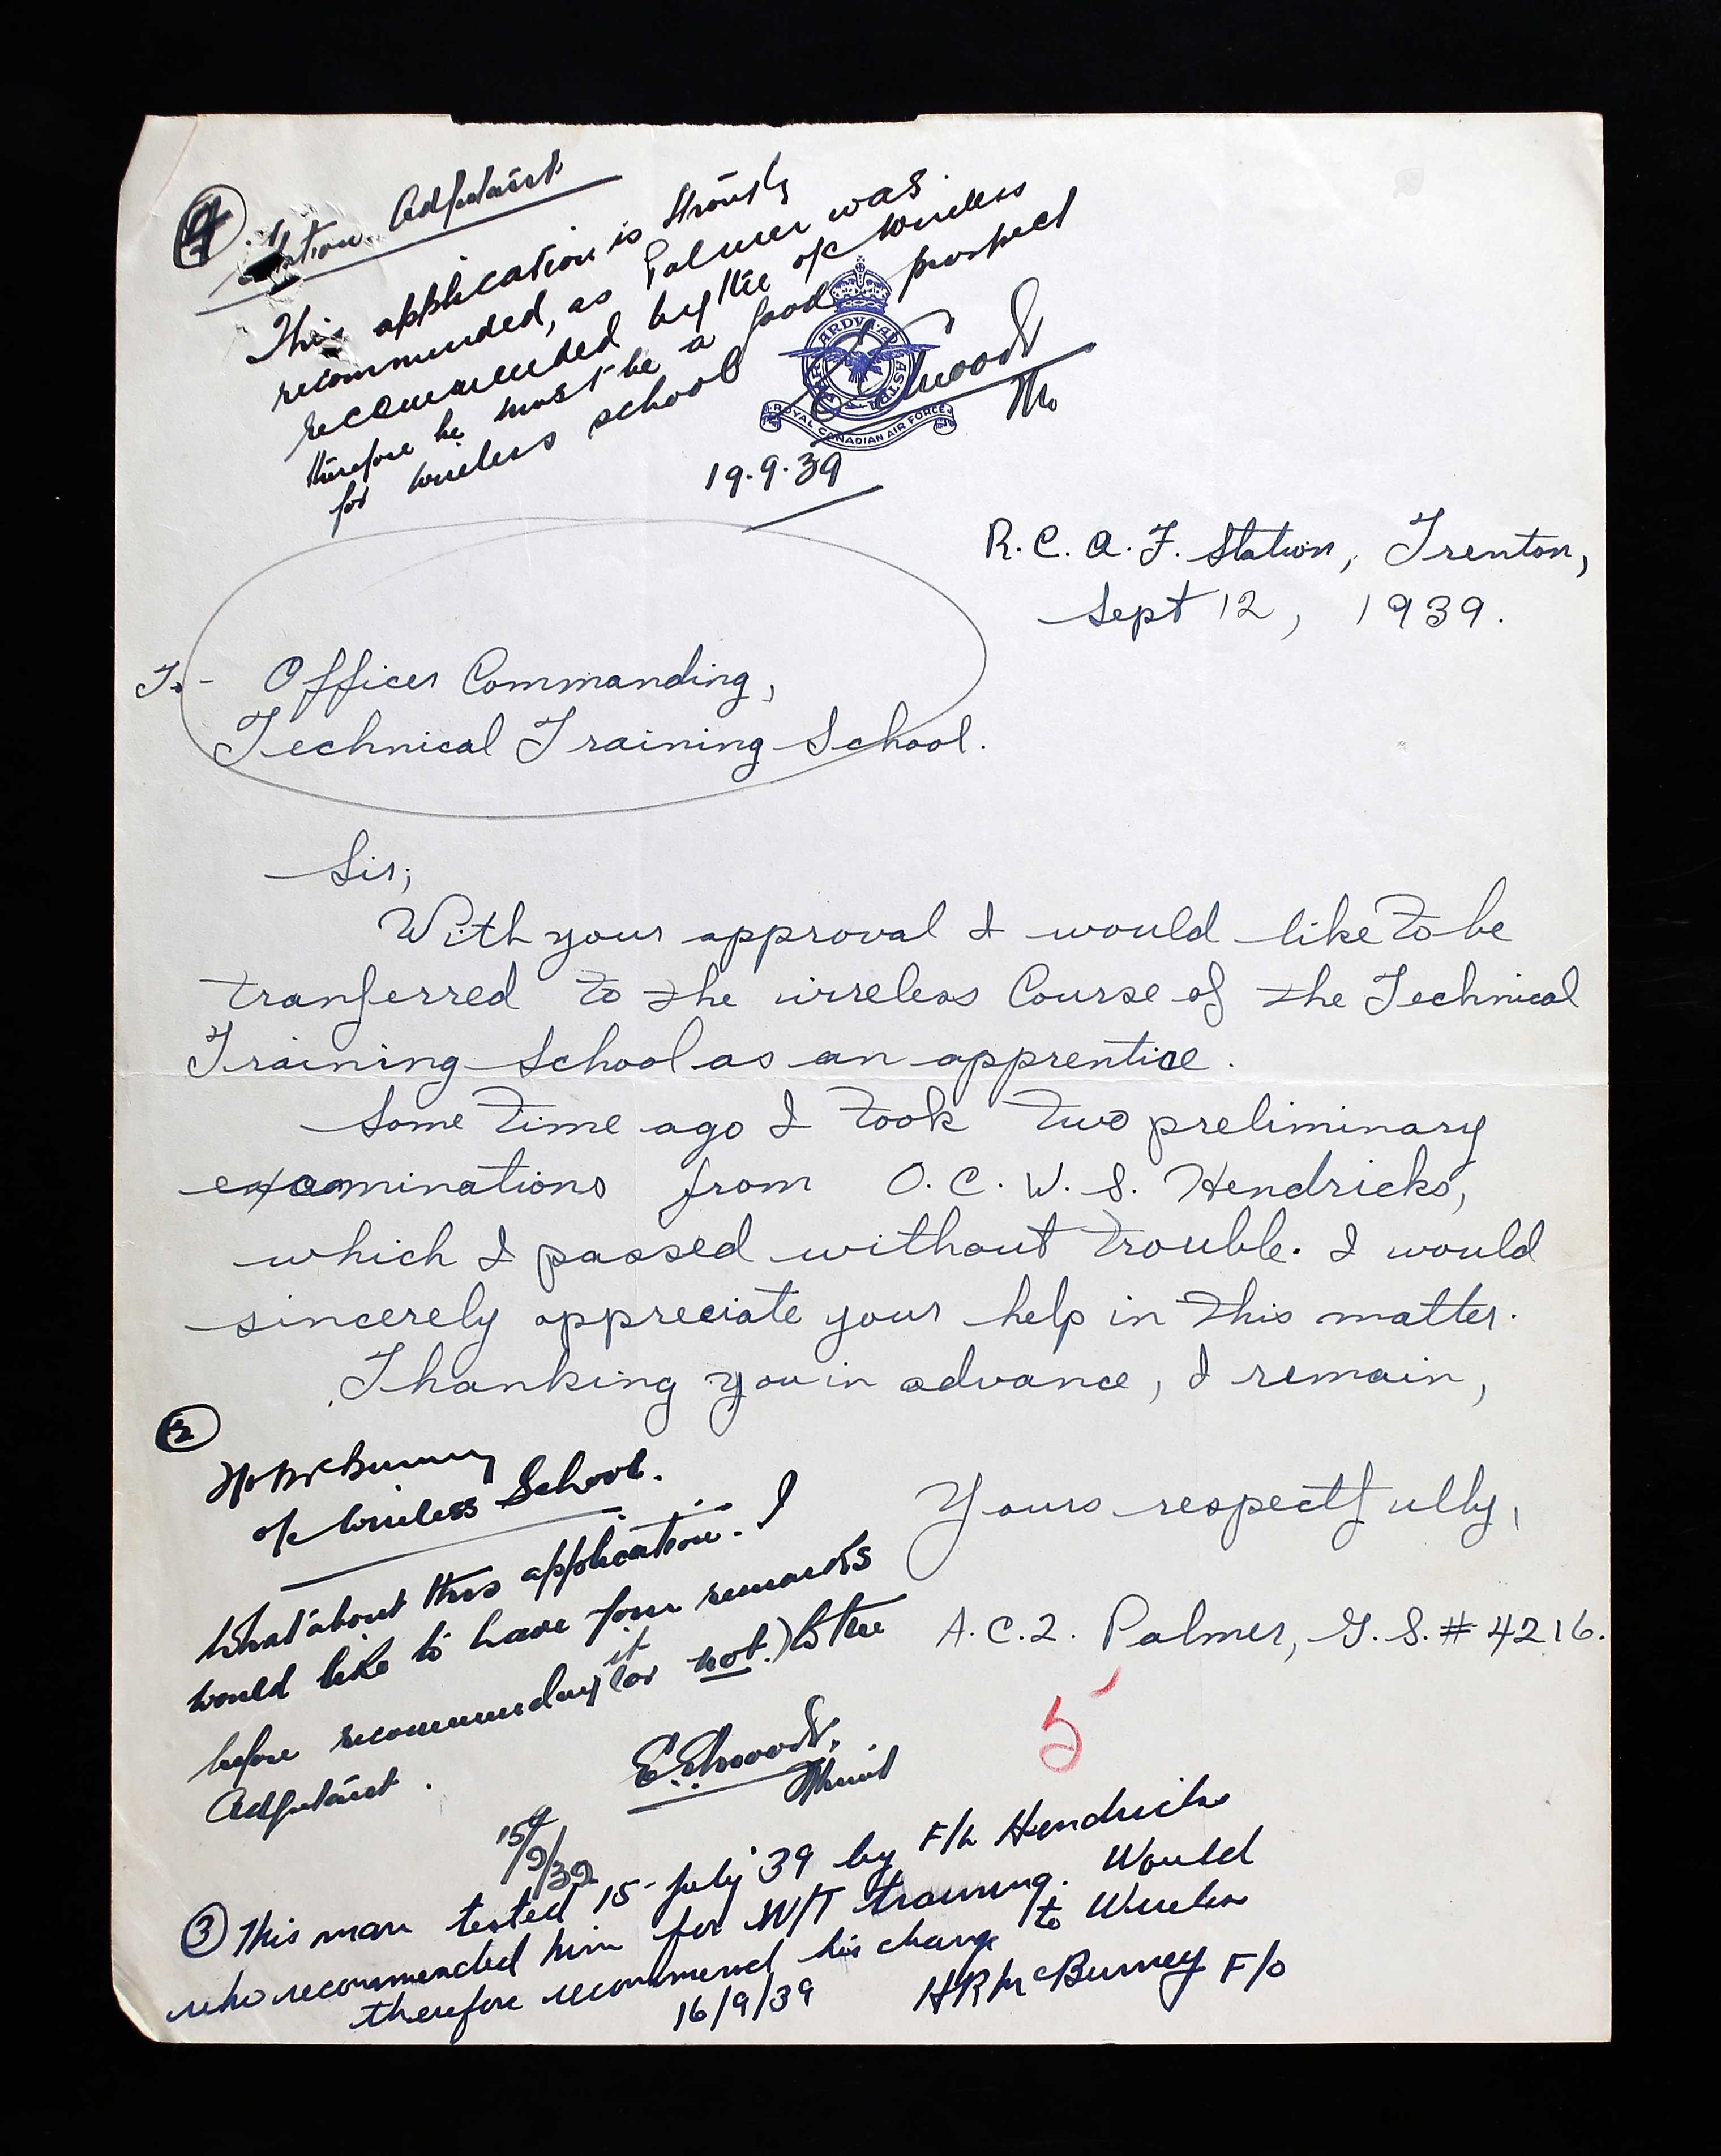 4
Station Adjutant
This application is strongly
recommended, as Palmer was
recommended by the o/c wireless
therefore he must be a good prospect
for wireless school
PER ARDVA AD ASTRA
ROYAL CANADIAN AIR FORCE
19.9.39
R.C.A.F. Station, Trenton,
Sept 12, 1939.
To- Officer Commanding,
Technical Training School.
Sir;
With your approval I would like to be
tranferred to the wireless Course of the Technical
Training School as an apprentice.
Some time ago I took two preliminary
examinations from O.C.W.S. Hendricks,
which I passed without trouble. I would
sincerely appreciate your help in this matter.
Thanking you in advance, I remain,
Yours respectfully,
A.C.2. Palmer, G.S. # 4216.
5
2
F/O McBurney
o/c Wireless School.
What about this application. I
would like to have your remarks
before recommending it (or not.) to the
Adjutant.
15/9/39
3 This man tested 15 July '39 by F/L Hendricks
who recommended him for W/T training. Would
therefore recommend his change to Wireless
16/9/39 HR McBurney F/O